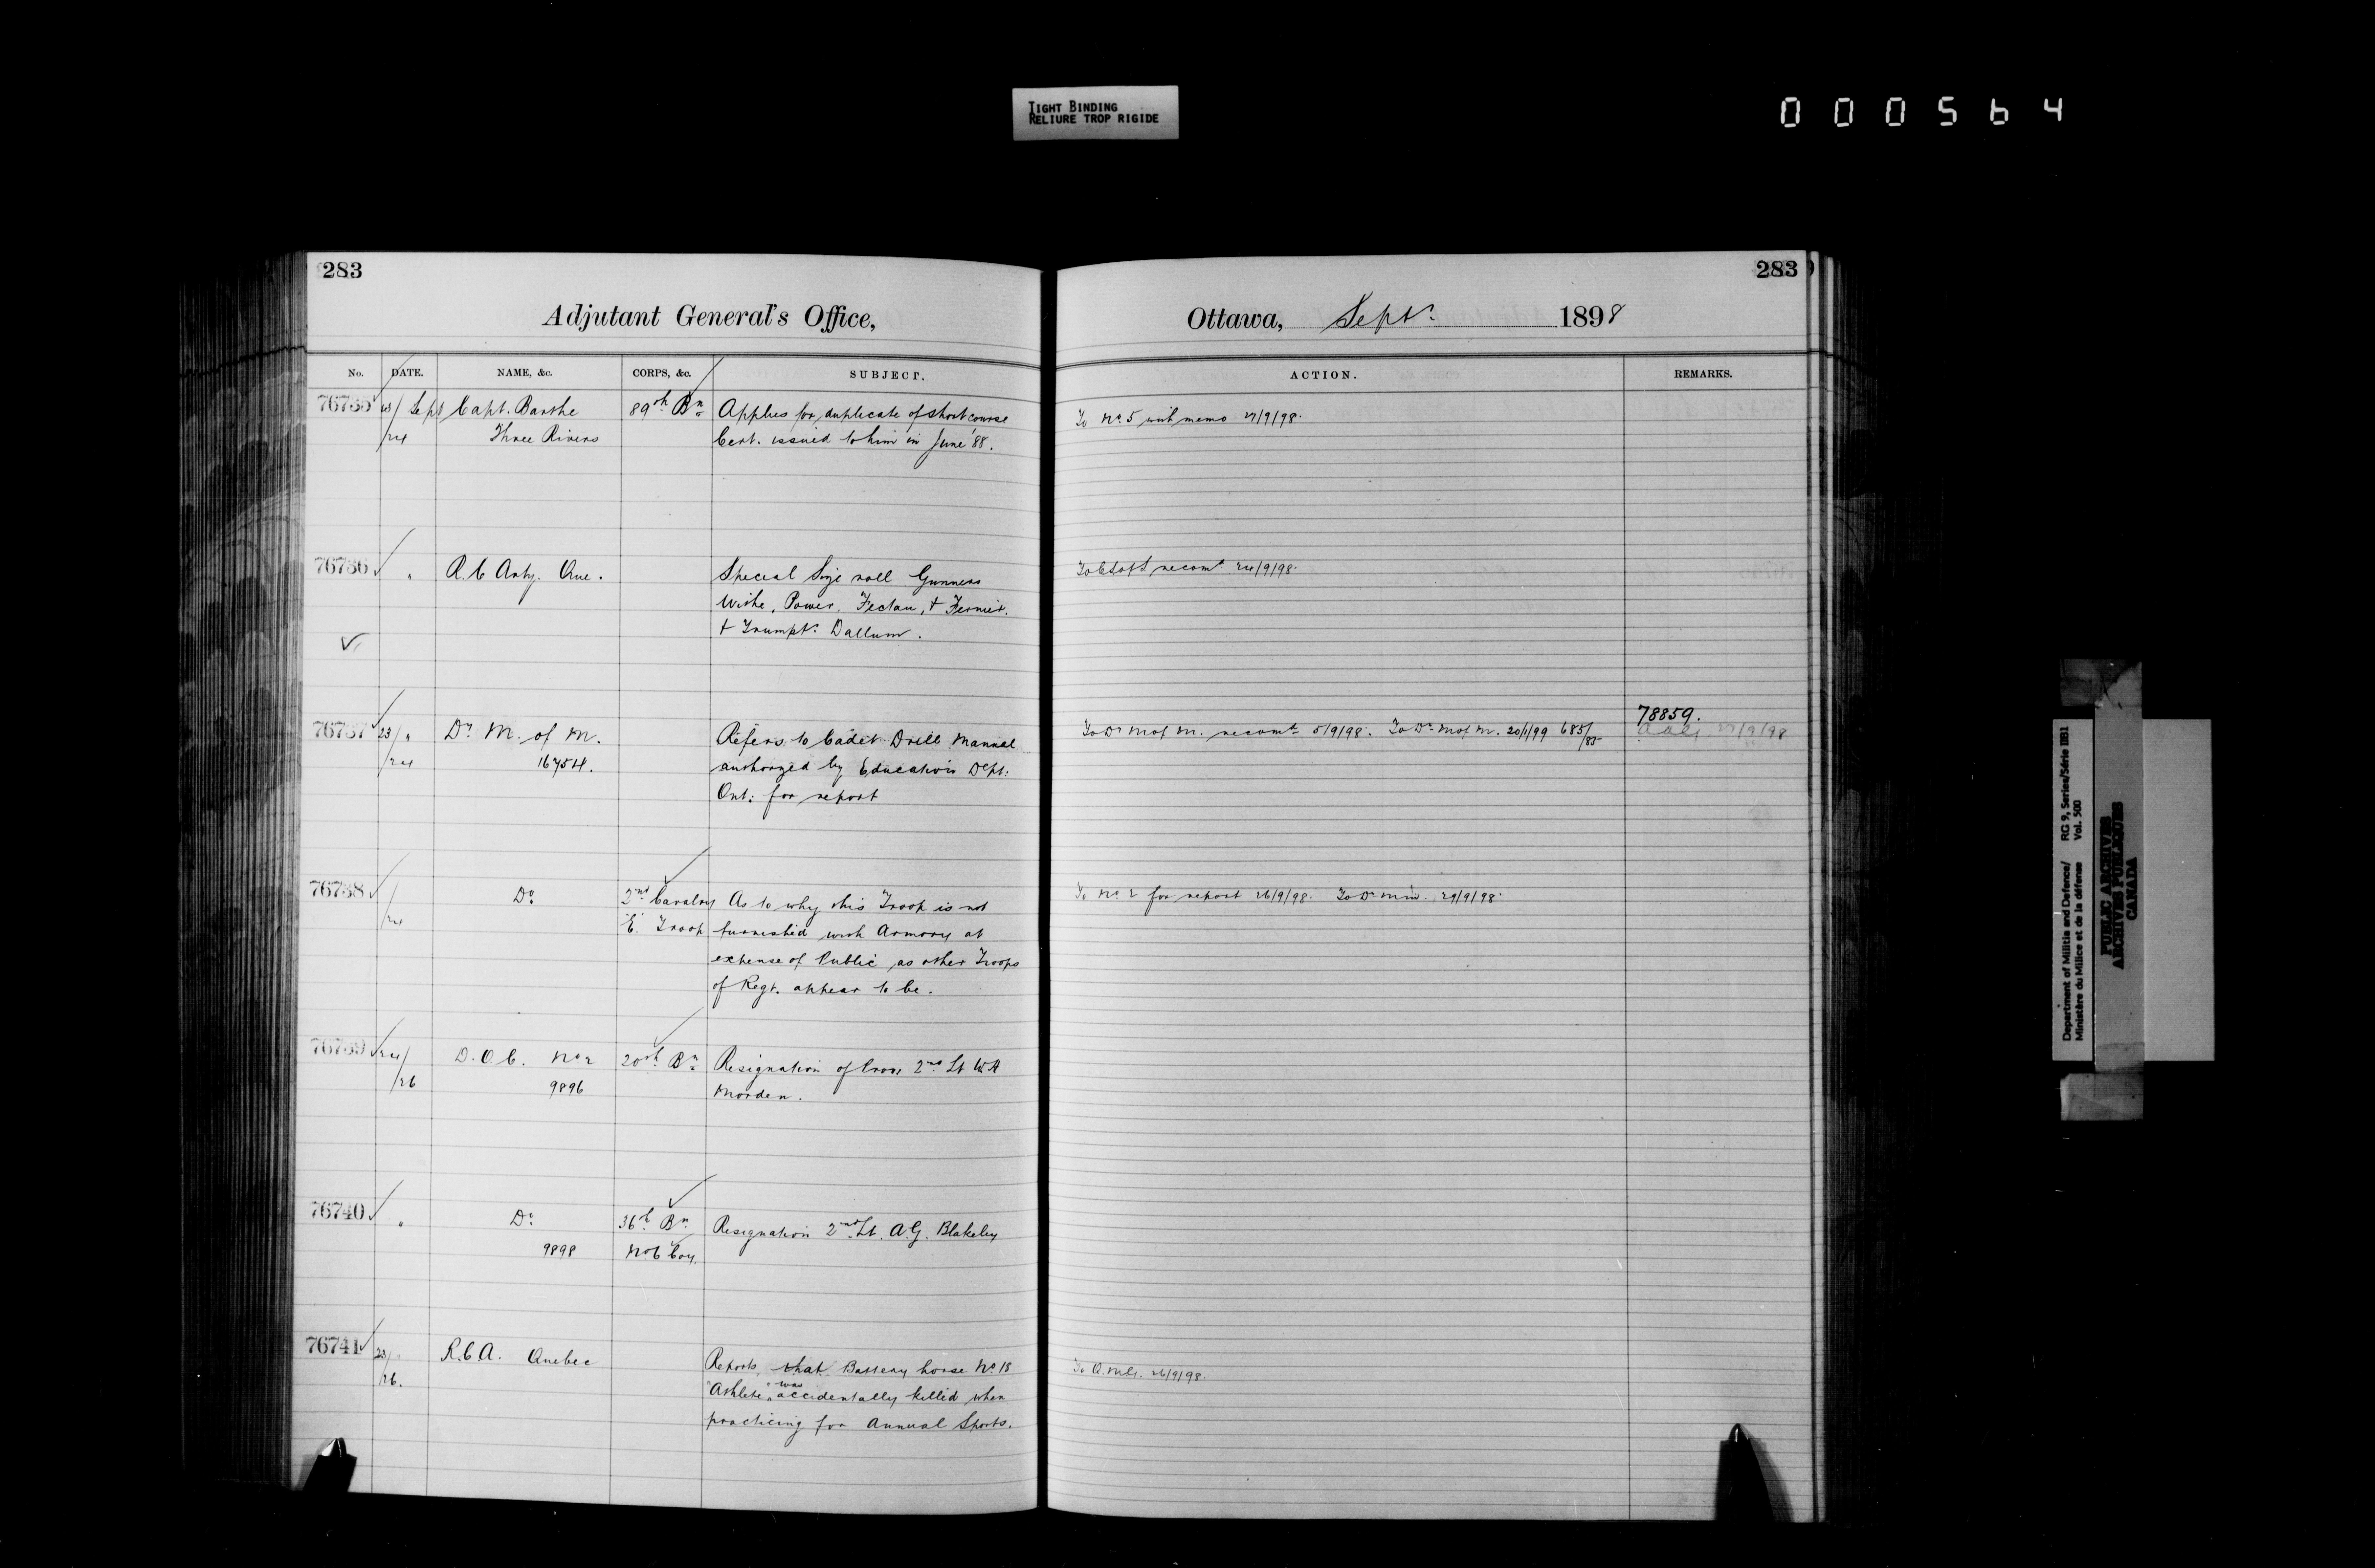 TIGHT BINDING
RELIURE TROP RIGIDE
000564
283
283
Adjutant General's Office,
Ottawa, Sept. 1898
No. DATE. NAME, &c. CORPS, &c. SUBJECT. ACTION. REMARKS.
76735 23/ Sept Capt. Barthe 89th Bn Applies for duplicate of short course To No. 5 with memo 27/9/98.
/24 Three Rivers Cert. issued to him in June '88.
76736 " R.C Arty. Que. Special Size roll Gunners 24/9/98.
Power, Fectau, +
+ Trumptr. Dallum.
76737 23/ " Dr M. of M. Refers to Cadet Drill Manual To Dr M of M. 5/9/98. To Dr M of M. 20/1/99 685/85 78859.
/24 16754. authorized by Education Dept. 27/9/98
Ont: for report
76738 Do 2nd Cavalry As to why this Troop is not To No. 2 for report 26/9/98. To Dr Min. 29/9/98.
/24 "E. Troop furnished with Armory at
expense of Public as other Troops
of Regt. appear to be.
76739 24/ D.O.C. No 2 20th Bn Resignation of Prov 2nd Lt W H
/26 9896 Morden.
76740 " Do 36th Bn Resignation 2nd Lt. A.G. Blakeley
9898 No 6 Coy.
76741 23/ " R.C.A. Quebec Reports that Battery horse No 18 To Q.M.G. 26/9/98.
/26. "Athlete" was accidentally killed when
practicing for Annual Sports.
Department of Militia and Defence/ RG 9, Series/Série IIB1
Ministère du Milice et de la défense Vol. 500
PUBLIC ARCHIVES
ARCHIVES PUBLIQUES
CANADA